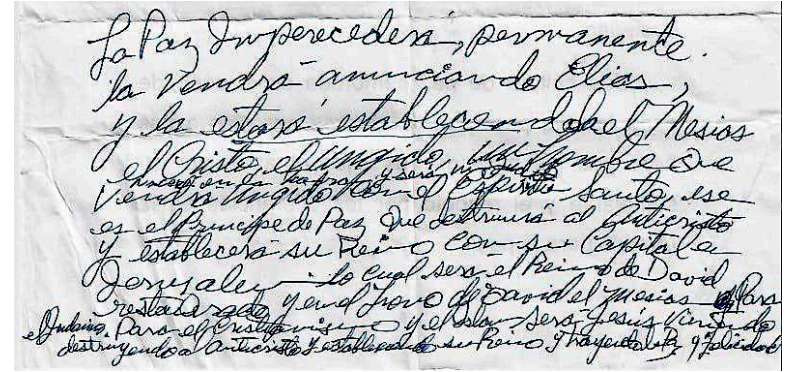 La Paz Imperecedera, permanente.
la vendrá anunciando Elías,
y la estará estableciendo el Mesías
el Cristo, el Ungido, un hombre que
nacerá en la
vendrá Ungido con el Espíritu Santo, ese
es el Príncipe de Paz que destruirá al Anticristo
y establecerá su Reino con su Capital en
Jerusalen lo cual será el Reino de David
restaurado y en el Trono de David el Mesías Para
el Judaismo, Para el Cristianismo y el Islam será Jesús viniendo
destruyendo a Anticristo y estableciendo su Reino y trayendo la Paz y Felicidad